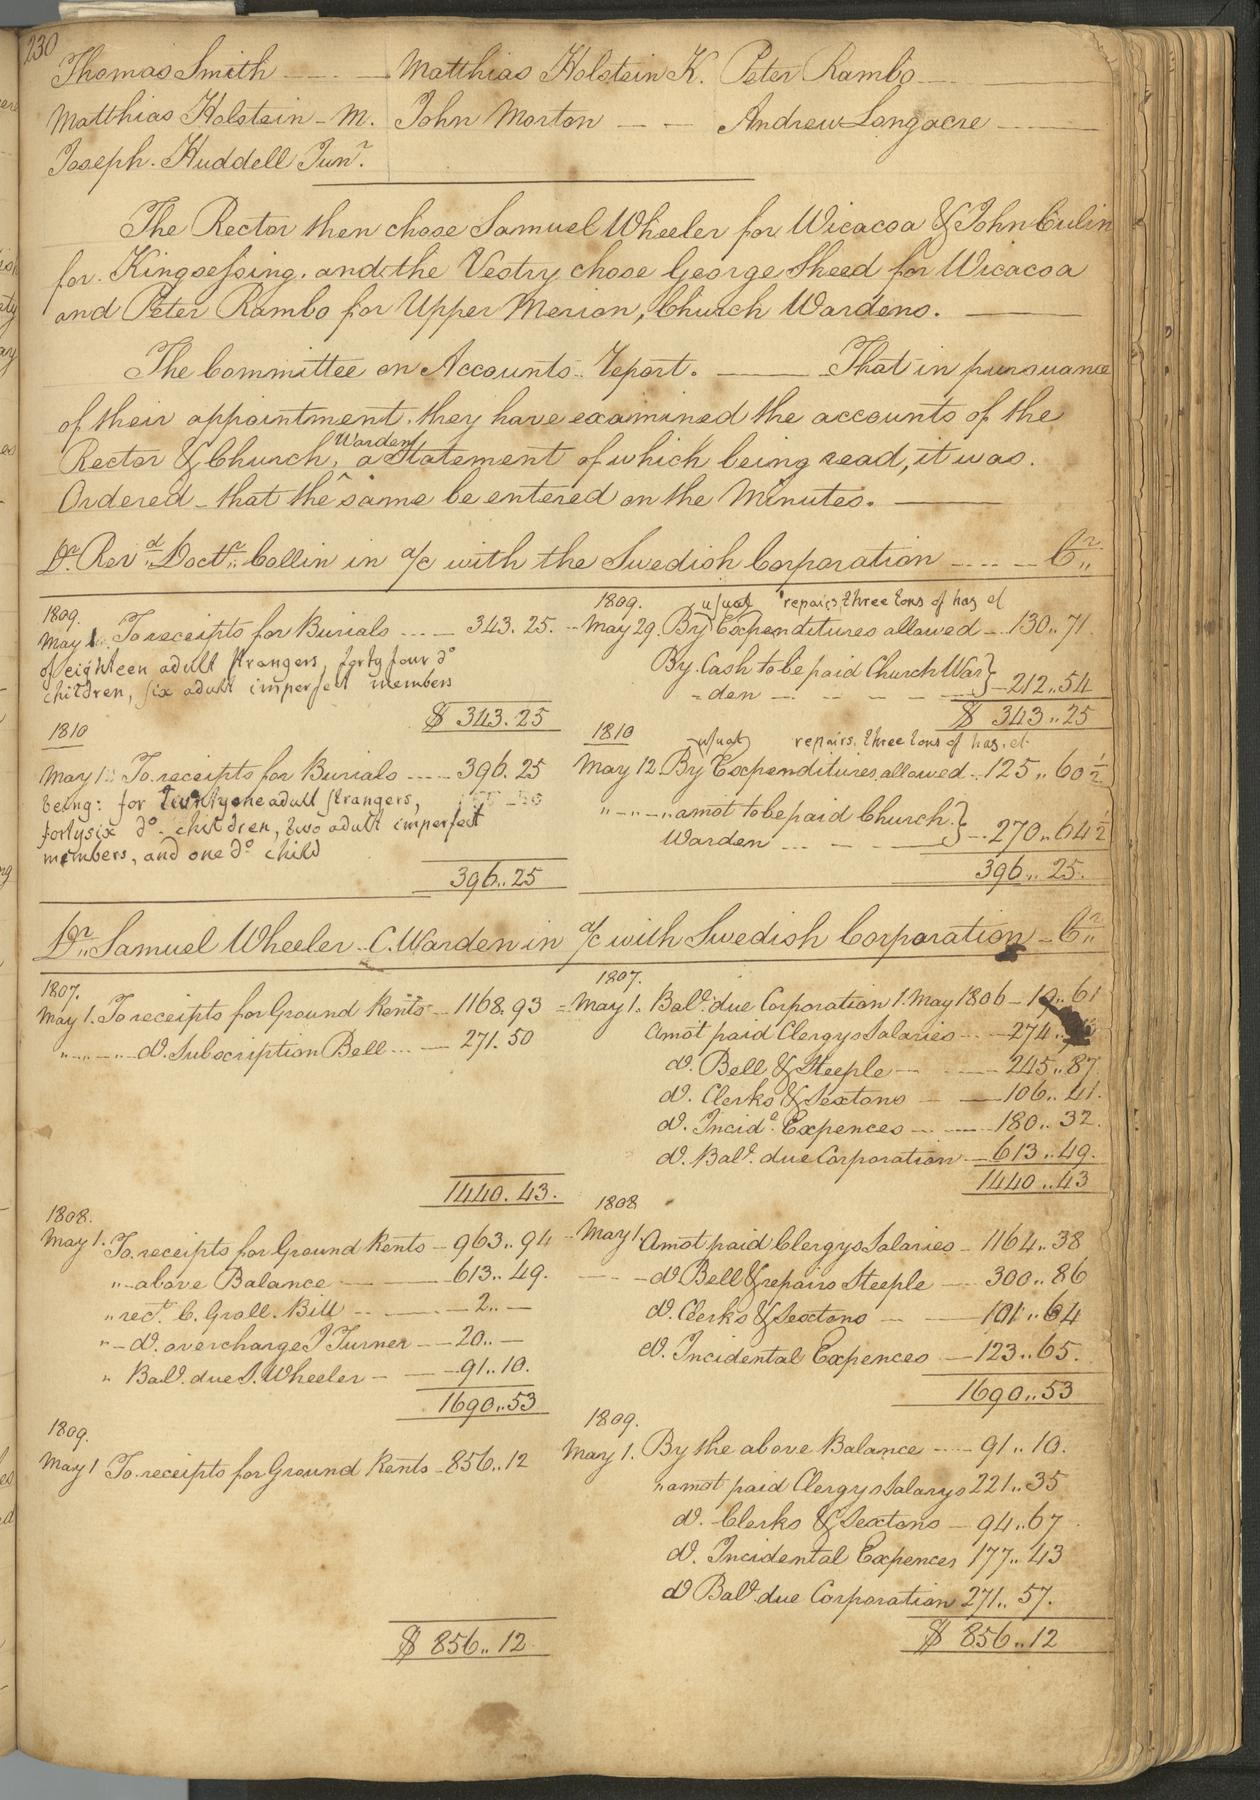 230
Thomas Smith — — Matthias Holstein K. Peter Rambo —
Matthias Holstein - M. John Morton — — Andrew Longacre —
Joseph. Huddell Junr.
The Rector then chose Samuel Wheeler for Wicacoa & John Culin
for Kingsessing. and the Vestry chose George Sheed for Wicacoa
and Peter Rambo for Upper Merion, Church Wardens. —
The Committee on Accounts Report. — That in pursuance
of their appointment, they have examined the accounts of the
Rector & Church, Warden a Statement of which being read, it was.
Ordered - that the same be entered on the Minutes. —
Dr. Revd. Doctr. Collin in a/c with the Swedish Corporation .... Cr.
1809.
May 1. To receipts for Burials ... 343.25.
of eighteen adult strangers, forty four do
children, six adult imperfect members
$ 343.25
1809. usual repairs, three tons of hay et
May 29. By Expenditures allowed .. 130..71
By Cash to be paid Church War
=den — — — — 212..54
$ 343..25
1810
May 1. To receipts for Burials .... 396.25
being: for twentyone adult strangers,
fortysix do. children, two adult imperfect
members, and one do child
396..25
1810 usual repairs. three tons of hay. et
May 12. By Expenditures, allowed .. 125..60 1/2
"-"-".. amot to be paid Church
Warden ... — — 270..64 1/2
396..25.
Dr. Samuel Wheeler C. Warden in a/c with Swedish Corporation - Cr.
1807.
May 1. To receipts for Ground Rents .. 1168.93
"-"-"- do. Subscription Bell ... — 271.50
1440.43.
1807.
May 1. Bale. due Corporation 1. May 1806 - 19..61
Amot paid Clergys Salaries ... 274..
do. Bell & Steeple — — 245..87
do. Clerks & Sextons — — 106..41.
do. Incidl. Expences ... — 180..32.
do. Bale. due Corporation — 613..49.
1440..43
1808.
May 1. To receipts for Ground Rents - 963..94
"-above Balance — 613..49.
" rect. C. Groll. Bill .. — 2.. —
"-do. overcharge J Turner — 20.. —
" Bale. due S. Wheeler — — 91..10.
1690..53
1808
May 1. Amot paid Clergys Salaries - 1164..38
-do Bell & repairs Steeple — 300..86
do. Clerks & Sextons — — 101..64
do. Incidental Expences — 123..65.
1690..53
1809.
May 1 To receipts for Ground Rents - 856..12
$ 856..12
1809.
May 1. By the above Balance ..... 91..10.
" amot paid Clergys Salarys 221..35
do. Clerks & Sextons — 94..67
do. Incidental Expences 177..43
do Bale. due Corporation 271..57.
$ 856..12